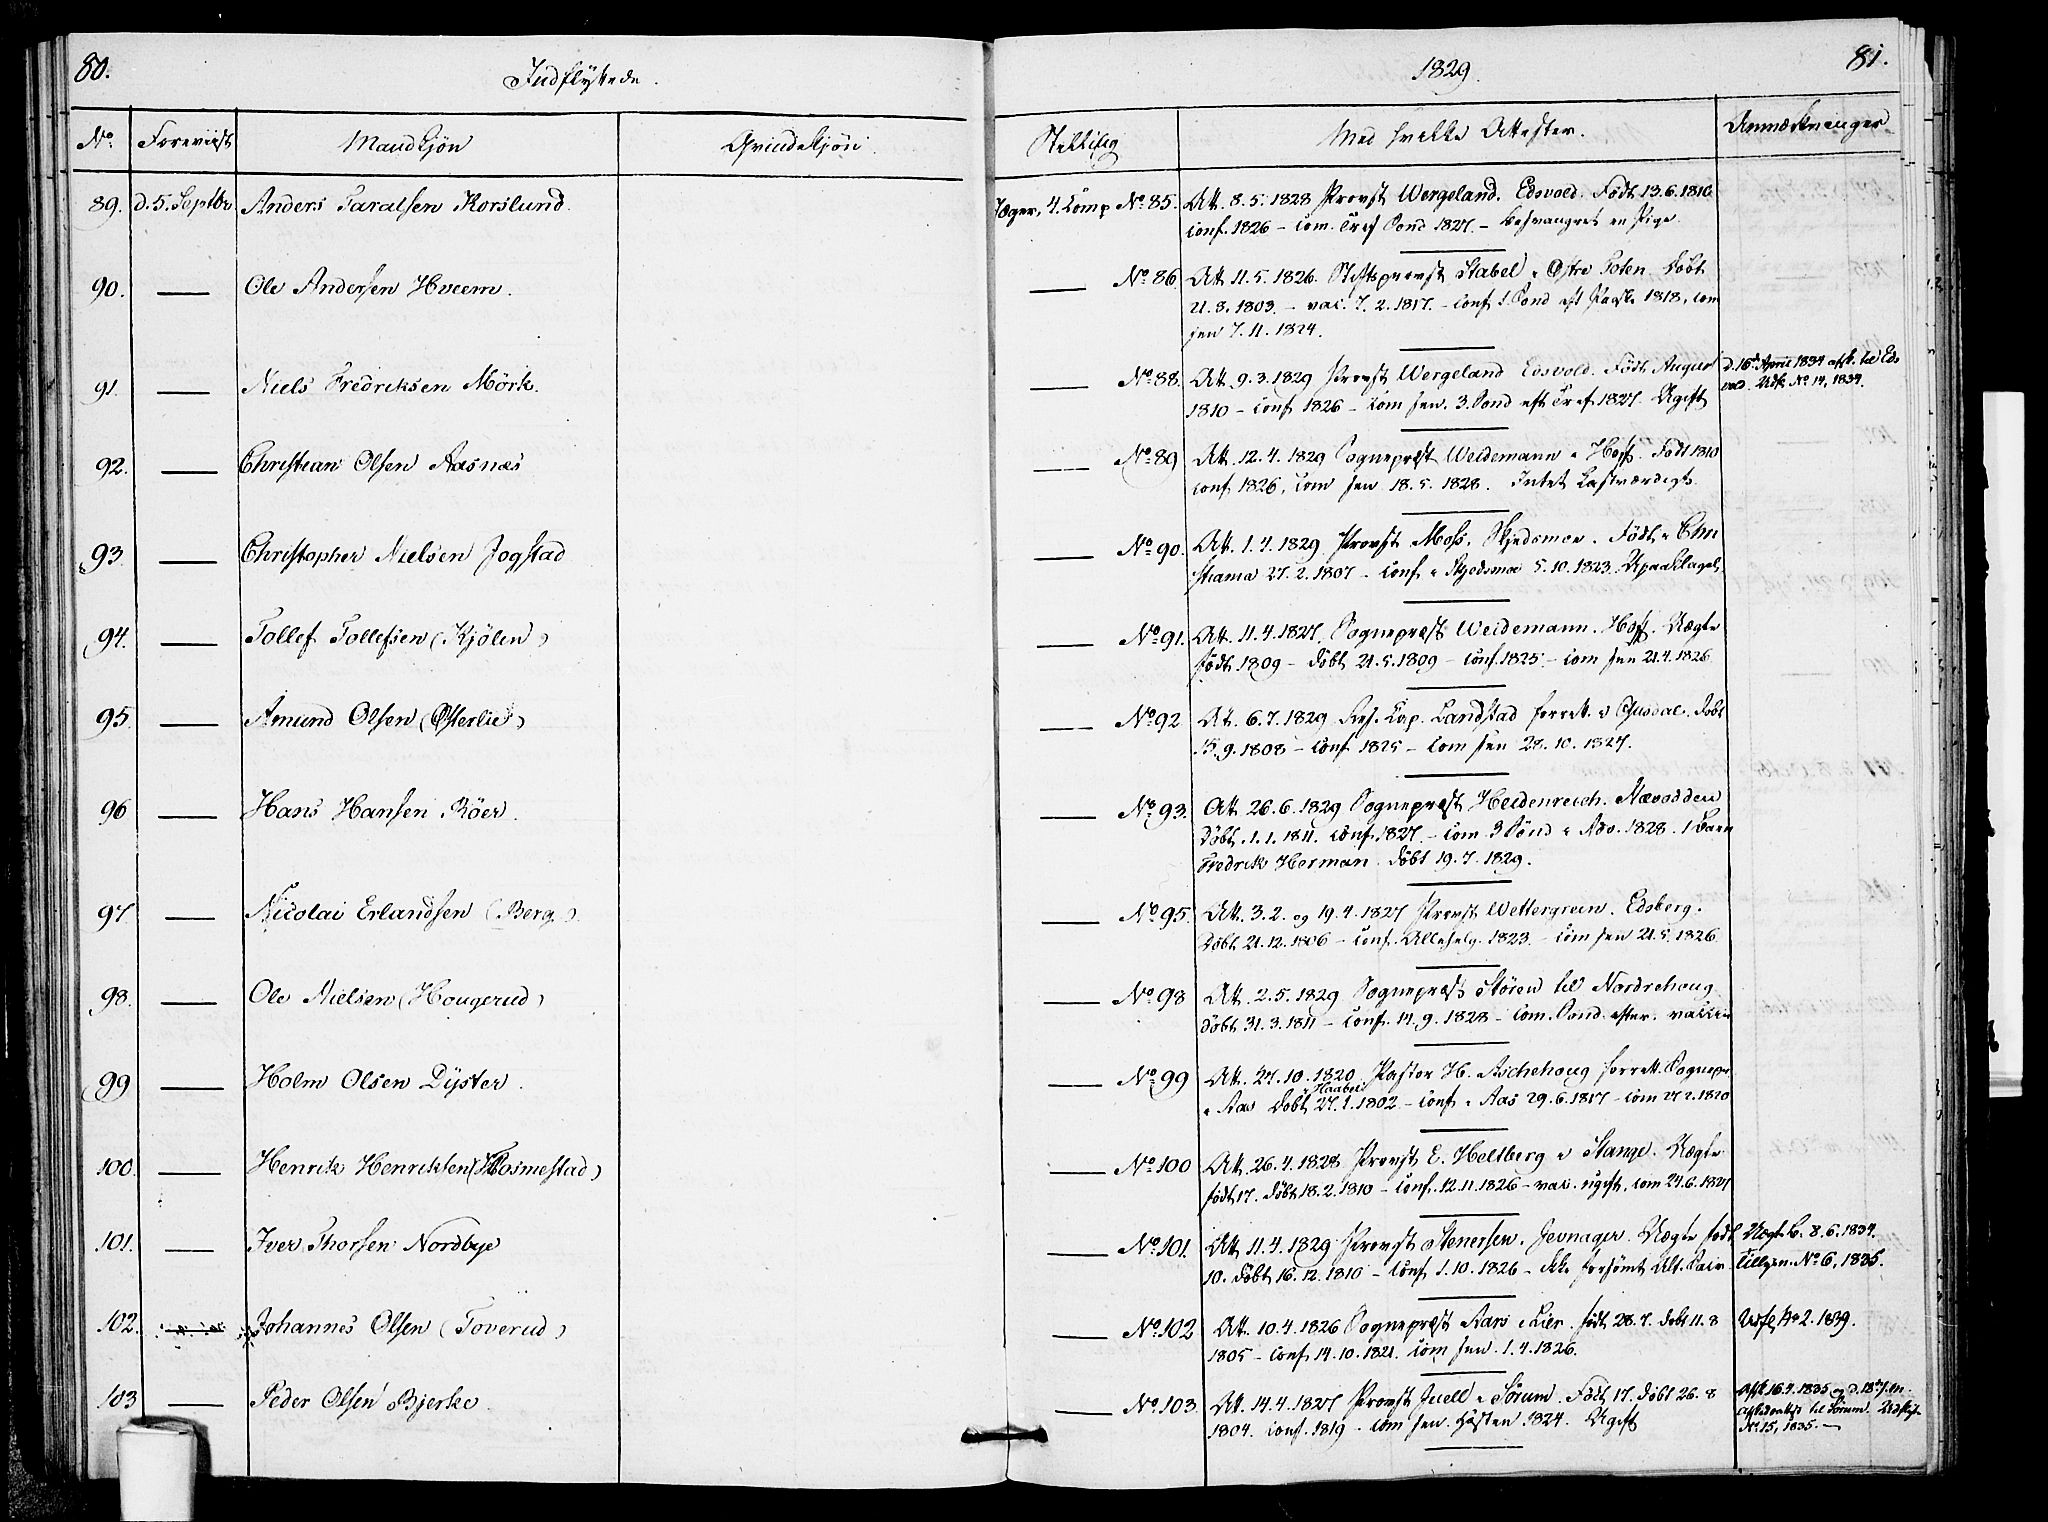 80.
Indflyttede.
1829.
81.
No. Foreviist Mandkjön Qvindekjön. Stilling Med hvilke Attester. Anmærkninger
89. d. 5. Septbr Anders Taralsen Korslund. Jæger, 4. Comp No. 85. Att. 8. 5. 1828 Provst Wergeland. Edsvold. Födt 13. 6. 1810
conf. 1826 – com. Tref Sönd 1827. – besvangret en Pige.
90. — Ole Andersen Hveem. — No. 86 Att. 11. 5. 1826. Stiftsprovst Stabel i Østre Toten. Döbt
21. 8. 1803. – vac. 7. 2. 1817. – conf 1. Sönd eft Paaske 1818, com
sen 7. 11. 1824.
91. — Niels Fredriksen Mörk. — No. 88. Att. 9. 3. 1829 Provst Wergeland Edsvold. Födt August d. 16d April 1834 afsk. til Eds
1810 – conf 1826 – com sen. 3. Sönd eft Tref 1827. Ugift vold. Udfl. No 14, 1834.
92. — Christian Olsen Aasnæs — No. 89 Att. 12. 4. 1829 Sognepræst Weidemann i Hoff. Födt 1810
conf 1826, com sen 18. 5. 1828. Intet Lastværdigt.
93. — Christopher Nielsen Jogstad — No. 90. Att. 1. 4. 1829 Provst Moss. Skjedsmoe. Födt i Chri
stiania 27. 2. 1807 – conf i Skjedsmoe 5. 10. 1823. Upaaklaget.
94. — Tollef Tollefsen (Kjölen) — No. 91. Att. 11. 4. 1827. Sognepræst Weidemann. Hoff. Uægte
födt 1809 – döbt 21. 5. 1809 – conf. 1825 – com sen 21. 4. 1826
95. — Amund Olsen (Østerlie) — No. 92 Att. 6. 7. 1829 Res. Cap. Landstad forrett. i Ousdal. döbt
15. 9. 1808 – conf 1825 – com sen 28. 10. 1827.
96 — Hans Hansen Röer. — No. 93. Att. 26. 6. 1829 Sognepræst Heidenreich. Næsodden
Döbt. 1. 1. 1811. conf. 1827. – com 3 Sönd i Adv. 1828. 1 Barn
Fredrik Herman. döbt 19. 7. 1829.
97 — Nicolai Erlandsen (Berg) — No. 95. Att. 3. 2. og 19. 4. 1827 Provst Wettergreen. Edsberg.
Döbt 21. 12. 1806 – conf. Allehelg. 1823. – com sen 21. 5. 1826
98. — Ole Nielsen (Hougerud) — No. 98 Att. 2. 5. 1829 Sognepræst Stören til Nordrehoug
döbt 31. 3. 1811 – conf. 14. 9. 1828 – com. Sönd. efter. vaccin
99 — Holm Olsen Dyster. — No. 99 Att. 27. 10. 1820. Pastor H. Aschehoug forrett. Sognepr
i Aas Döbt i Haaböl 27. 1. 1802 – conf i Aas 29. 6. 1817 – com 27 2. 1820
100. — Henrik Henriksen (Hosmestad) — No. 100 Att. 26. 4. 1828 Provst E. Heltberg i Stange. Uægte
födt 17. döbt 18. 2. 1810 – conf. 12. 11. 1826 – vac. ugift, com 24. 6. 1827
101. — Iver Thorsen Nordbye — No. 101. Att 11. 4. 1829 Provst Stenersen. Jevnager. Uægte födt Uægt. B. 8. 6. 1834.
10. döbt 16. 12. 1810 – conf 1. 10. 1826 – ikke forsömt Alt. Sacr. Tillysn. No 6, 1835.
102. — Johannes Olsen (Toverud) — No. 102 Att. 10. 4. 1826 Sognepræst Aars i Lier. födt 28. 7. döbt 11. 8 Udfl. No 2. 1839.
1805 – conf 14. 10. 1821. com sen. 1. 4. 1826.
103 — Peder Olsen Bjerke. — No. 103 Att. 14. 4. 1827 Provst Juell i Sörum. Födt 17. döbt 26. 8 Afsk 16. 4. 1835 og d. 18 
1804. conf. 1819 – com sen. Hösten 1824. Ugift til Sörum. Udfl.
No 15, 1835. —